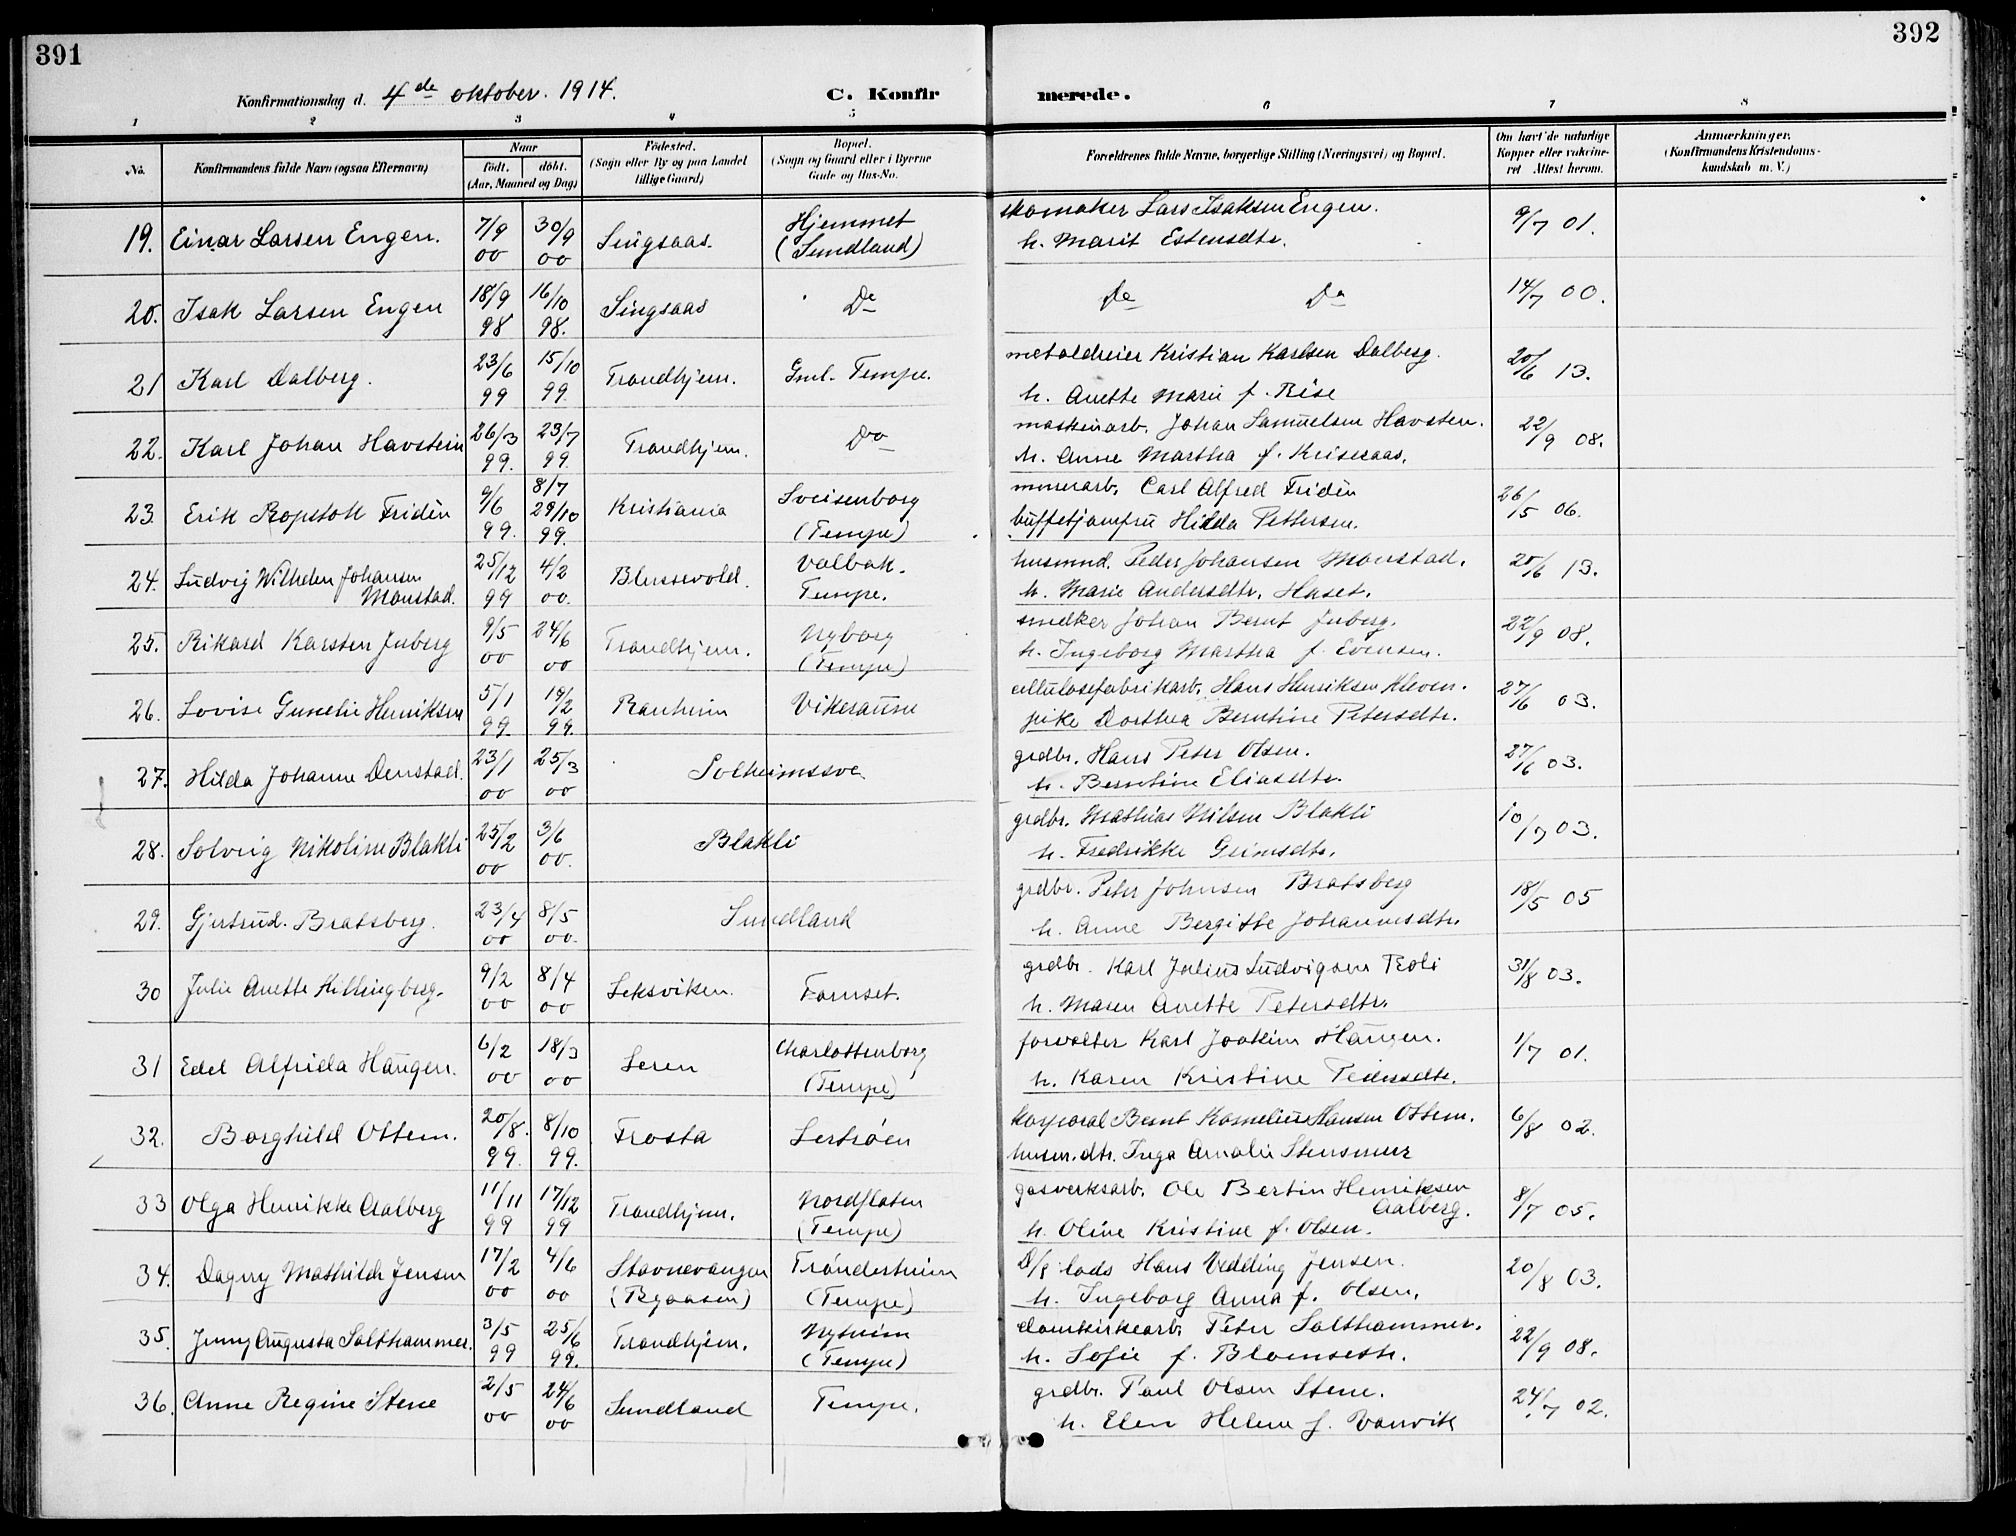 391
392
Konfirmationsdag d. 4de oktober. 1914.
C. Konfirmerede.
1 2 3 4 5 6 7 8
No.
Konfirmandens fulde Navn (ogsaa Efternavn)
Naar
født. døbt.
(Aar, Maaned og Dag)
Fødested.
(Sogn eller By og paa Landet
tillige Gaard)
Bopæl.
(Sogn og Gaard eller i Byerne
Gade og Hus-No.
Forældrenes fulde Navne, borgerlige Stilling (Næringsvei) og Bopæl.
Om havt de naturlige
Kopper eller vakcine-
ret Attest herom.
Anmærkninger.
(Konfirmandens Kristendoms-
kundskab m. V.)
19. Einar Larsen Engen. 7/9 00 30/9 00 Singsaas. Hjemmet (Sundland) skomaker Lars Isaksen Engen. 9/7 01.
h. Marit Estensdtr.
20. Isak Larsen Engen 18/9 98 16/10 98. Singsaas Do Do Do 14/7 00.
21 Karl Dalberg. 23/6 99 15/10 99. Trondhjem. Gml. Tempe. metaldreier Kristian Karlsen Dalberg. 20/6 13.
h. Anette Marie f. Böse
22. Karl Johan Havstein 26/3 99. 23/7 99. Trondhjem. Do maskinarb. Johan Samuelsen Havsten. 22/9 08.
h. Anne Martha f.
23. Erik Ropstok Fridèn 9/6 99. 8/7 29/10 99. Kristiania Sveisenborg (Tempe) murerarb. Carl Alfred Fridèn 26/5 06.
buffetjomfru Hilda Pettersen.
24. Ludvig Wilhelm Johansen Monstad. 25/12 99 4/2 00. Blussevold. Valbak. Tempe. husmnd. Peder Johansen Monstad. 20/6 13.
h. Marie Andersdtr. Huset.
25. Rikard Karsten Juberg 9/5 00 24/6 00 Trondhjem. Nyborg (Tempe) snedker Johan Bernt Juberg. 22/9 08.
h. Ingeborg Martha f. Evensen.
26. Lovise Gunelie Henriksen 5/1 99. 19/2 99. Ranheim Vikeraune cellulosefabrikarb. Hans Henriksen Kleven. 27/6 03.
pike Dorthea Berntine Petersdtr.
27. Hilda Johanne Denstad. 23/1 00 25/3 00 Solheimssve. grdbr. Hans Peter Olsen. 27/6 03.
h. Berntine Eliasdtr.
28. Solveig Nikoline Blakli 25/2 00 3/6 00. Blakli grdbr. Mathias Nilsen Blakli 10/7 03.
h. Fredrikke Grimsdtr.
29. Gjertrud Bratsberg. 23/4 00 8/5 00. Sundland grdbr. Peter Johnsen Bratsberg 18/5 05
h. Anne Bergitte Johannesdtr.
30 Julie Anette Hillingberg. 9/2 00 8/4 00 Leksviken. Fornset. grdbr. Karl Julius Ludvigsen Troli 31/8 03.
h. Maren Anette Petersdtr.
31 Edel Alfrida Haugen. 6/2 00 18/3 00 Leren Charlottenborg (Tempe) forvalter Karl Joakim Haugen. 1/7 01.
h. Karen Kristine Pedersdtr.
32. Borghild Ottem. 20/8. 99. 8/10 99. Frosta Lertröen korporal Bernt Kornelius Hansen Ottem. 6/8 02.
husm.dtr. Inga Amalie Stensmur
33 Olga Henrikke Aalberg 11/11 99 17/12 99 Trondhjem. Nordflaten (Tempe) gasverksarb. Ole Bertin Henriksen Aalberg. 8/7 05.
h. Oline Kristine f. Olsen.
34. Dagny Mathilde Jensen 17/2 00 4/6 00 Stavnevangen (Byaasen) Trönderheim (Tempe) D/s lods Hans Vedding Jensen. 20/8 03.
h. Ingeborg Anna f. Olsen.
35. Jenny Augusta Salthammer. 3/5 99 25/6 99. Trondhjem. Nyheim (Tempe) domkirkearb. Peter Salthammer. 22/9 08.
h. Sofie f. Blomseth.
36. Anne Regine Stene 2/5 00 24/6 00 Sundland Tempe. grdbr. Paul Olsen Stene. 24/7 02.
h. Elen Helene f. Vanvik